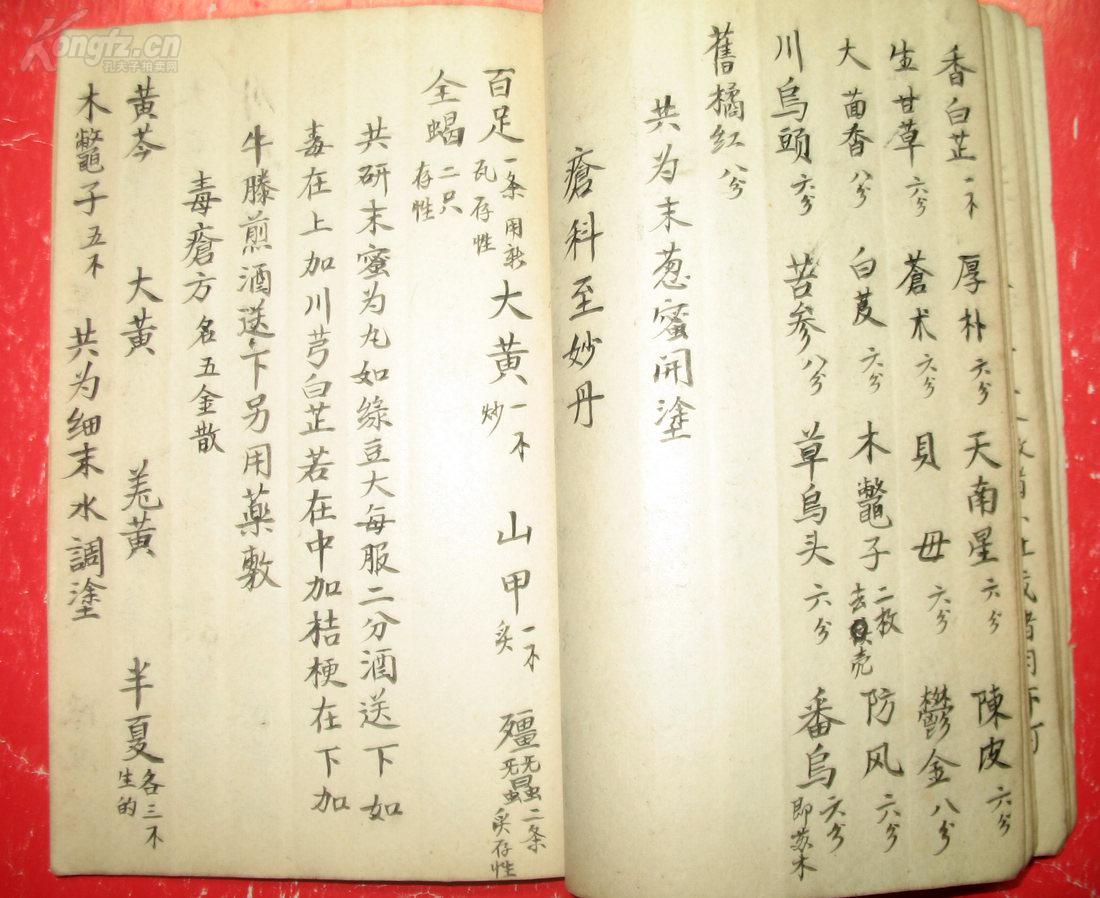 香白芷一不 厚朴六分 天南星六分 陳皮六分
生甘草六分 蒼术六分 貝母六分 鬱金八分
大茴香八分 白芨六分 木鼈子二枚去壳 防风六分
川烏頭六分 苦参八分 草烏头六分 番烏六分即苏木
舊橘红八分
共为末葱蜜開塗
瘡科至妙丹
百足一条用新瓦存性 大黄一不炒 山甲一不炙 殭蚕二条炙存性
全蝎二只存性
共研末蜜为丸如綠豆大每服二分酒送下如
毒在上加川芎白芷若在中加桔梗在下加
牛膝煎酒送下另用薬敷
毒瘡方名五金散
黄芩 大黄 羌黄 半夏各三不生的
木鼈子五不 共为细末水調塗
Kongfz.cn
孔夫子拍卖网